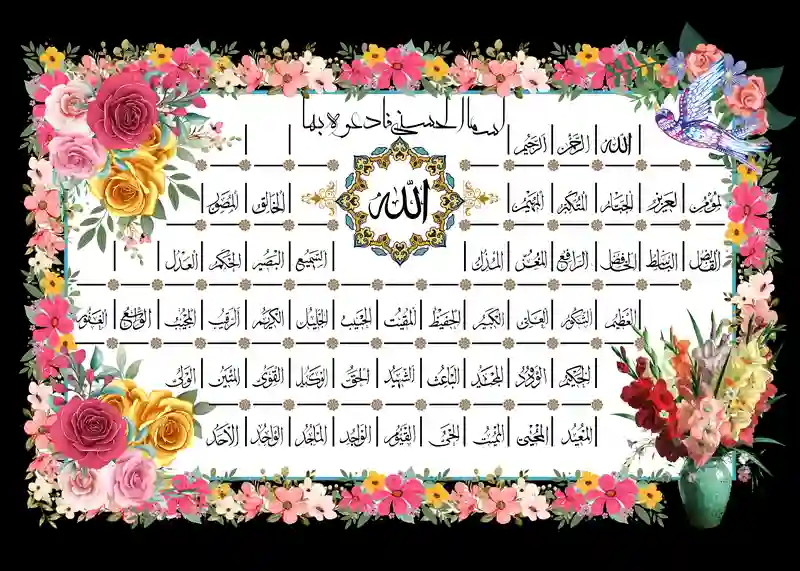 اسما الحسنى فادعوه بها
الله الرحمن الرحيم
المؤمن العزيز الجبار المتكبر المهيمن الله الخالق المصور
القابض الباسط الخافض الرافع المعز المذل السميع البصير الحكم العدل
العظيم الشكور العلي الكبير الحفيظ المقيت الحسيب الجليل الكريم الرقيب المجيب الواسع الغفور
الحكيم الودود المجيد الباعث الشهيد الحق الوكيل القوي المتين الولي
المعيد المحيي المميت الحي القيوم الواجد الماجد الواحد الاحد